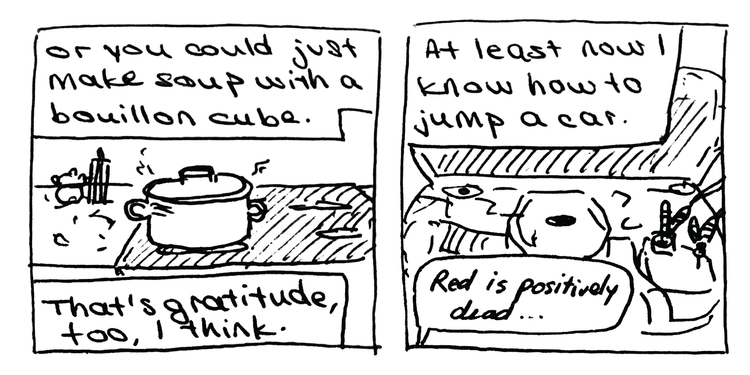 or you could just
make soup with a
bouillon cube.
That's gratitude,
too, I think.
At least now I
know how to
jump a car.
Red is positively
dead...